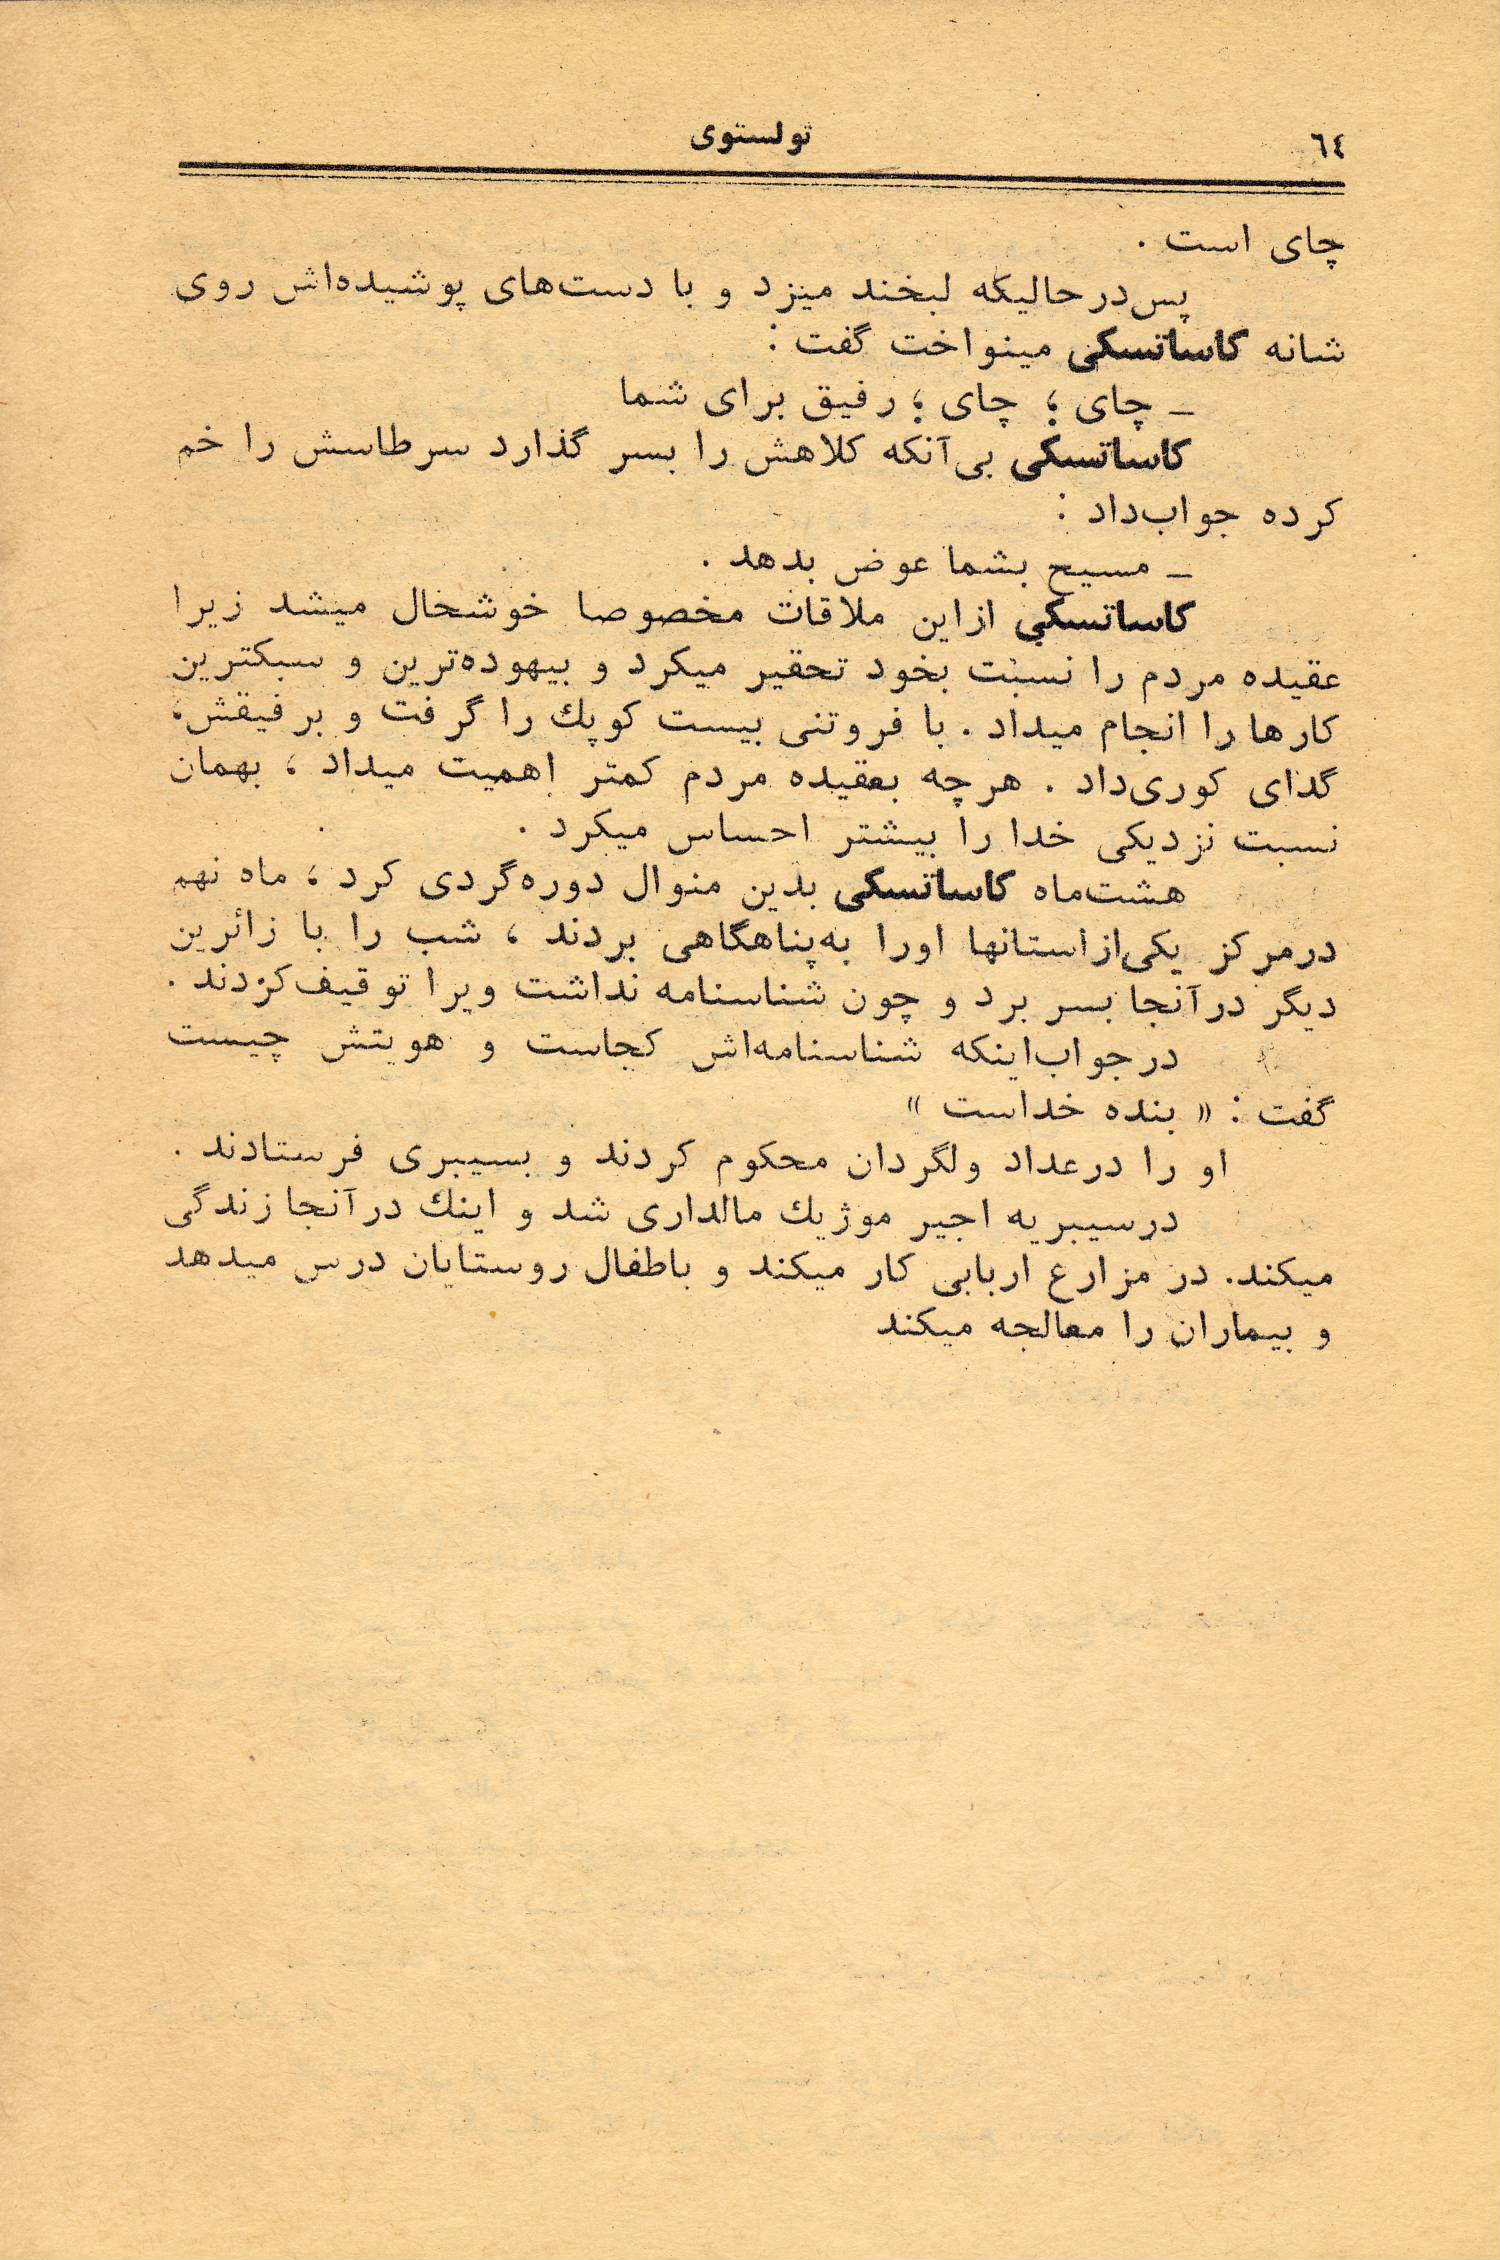 ٦٤
تولستوی
چای است .
پس‌در حالیکه لبخند میزد و با دست‌های پوشیده‌اش روی
شانه کاساتسکی مینواخت گفت :
ـ چای ؛ چای ؛ رفیق برای شما
کاساتسکی بی‌آنکه کلاهش را بسر گذارد سرطاسش را خم
کرده جواب‌داد :
ـ مسیح بشما عوض بدهد .
کاساتسکی ازاین ملاقات مخصوصا خوشحال میشد زیرا
عقیده مردم را نسبت بخود تحقیر میکرد و بیهوده‌ترین و سبکترین
کارها را انجام میداد . با فروتنی بیست کوپك را گرفت و برفیقش،
گدای کوری‌داد . هرچه بعقیده مردم کمتر اهمیت میداد ، بهمان
نسبت نزدیکی خدا را بیشتر احساس میکرد .
هشت‌ماه کاساتسکی بدین منوال دوره‌گردی کرد ، ماه نهم
درمرکز یکی‌ازاستانها اورا به‌پناهگاهی بردند ، شب را با زائرین
دیگر درآنجا بسر برد و چون شناسنامه نداشت ویرا توقیف‌کردند .
درجواب‌اینکه شناسنامه‌اش کجاست و هویتش چیست
گفت : « بنده خداست »
او را درعداد ولگردان محکوم کردند و بسیبری فرستادند .
درسیبریه اجیر موژیك مالداری شد و اینك درآنجا زندگی
میکند. در مزارع اربابی کار میکند و باطفال روستایان درس میدهد
و بیماران را معالجه میکند